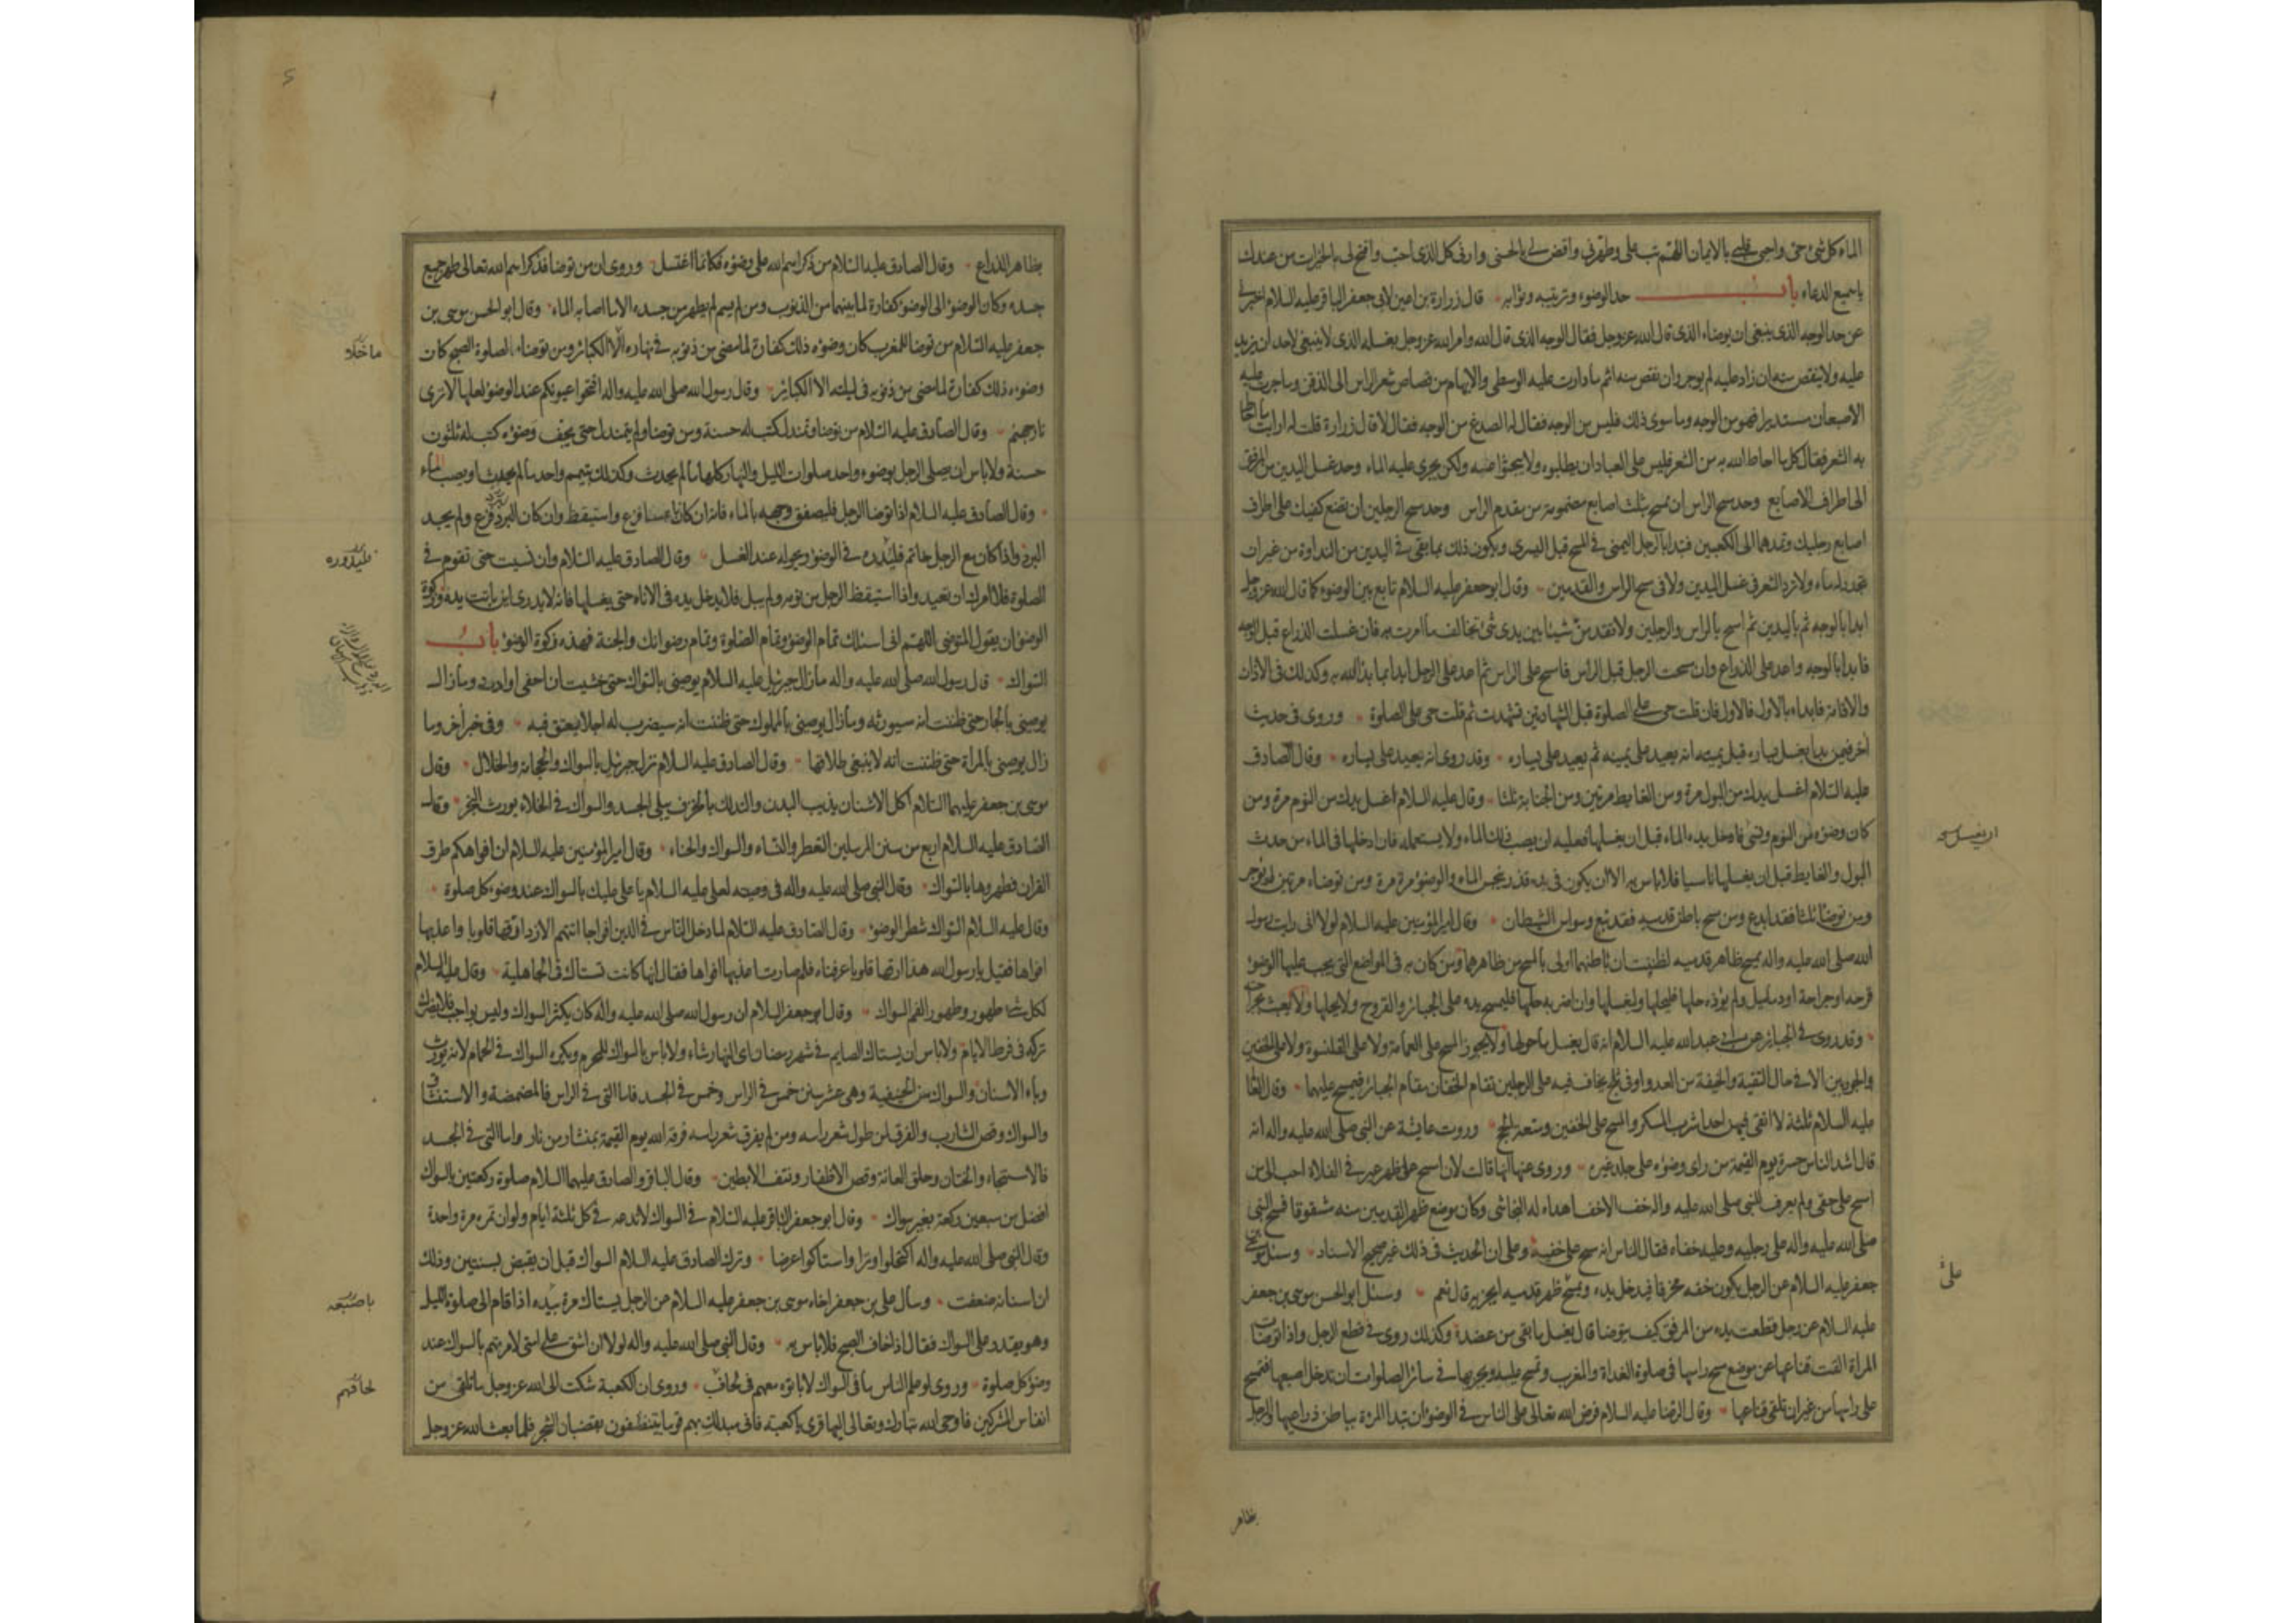 الماء كل شئ حى واحى قلبى بالايمان اللهم تب على وطهرنى واقض لى بالحسنى وارنى كل الذى احب وافتح لى بالخيرات من عندك
يا سميع الدعاء باب حد الوضوء وترتيبه وثوابه قال زرارة بن اعين لابى جعفر الباقر عليه السلام اخبرنى
عن حد الوجه الذى ينبغى ان يوضاء الذى قال الله عز وجل فقال الوجه الذى قال الله وامر الله عز وجل بغسله الذى لا ينبغى لاحد ان يزيد
عليه ولا ينقص منه ان زاد عليه لم يوجر وان نقص منه اثم ما دارت عليه الوسطى والابهام من قصاص شعر الراس الى الذقن وما جرت عليه
الاصبعان مستديرا فهو من الوجه وما سوى ذلك فليس من الوجه فقال له الصدغ من الوجه فقال لا قال زرارة قلت له ارايت ما احاط
به الشعر فقال كل ما احاط الله به من الشعر فليس على العباد ان يطلبوه ولا يبحثوا عنه ولكن يجرى عليه الماء وحد غسل اليدين من المرفق
الى اطراف الاصابع وحد مسح الراس ان تمسح بثلث اصابع مضمومة من مقدم الراس وحد مسح الرجلين ان تضع كفيك على اطراف
اصابع رجليك وتمدهما الى الكعبين فتبدا بالرجل اليمنى فى المسح قبل اليسرى ويكون ذلك بما بقى فى اليدين من النداوة من غير ان
تجدد له ماء ولا ترد الشعر فى غسل اليدين ولا فى مسح الراس والقدمين وقال ابو جعفر عليه السلام تابع بين الوضوء كما قال الله عز وجل
ابدا بالوجه ثم باليدين ثم امسح بالراس والرجلين ولا تقدمن شيئا بين يدى شئ تخالف ما امرت به فان غسلت الذراع قبل الوجه
فابدا بالوجه واعد على الذراع وان مسحت الرجل قبل الراس فامسح على الراس ثم اعد على الرجل ابدا بما بدا الله به وكذلك فى الاذان
والاقامة فابداء بالاول فالاول فان قلت حى على الصلوة قبل الشهادتين تشهدت ثم قلت حى على الصلوة وروى فى حديث
آخر فيمن بدا بغسل يساره قبل يمينه انه يعيد على يمينه ثم يعيد على يساره وقد روى انه يعيد على يساره وقال الصادق
عليه السلام اغسل يدك من البول مرة ومن الغايط مرتين ومن الجنابة ثلثا وقال عليه السلام اغسل يدك من النوم مرة ومن
كان وضوؤه من النوم ونسى فادخل يده الماء قبل ان يغسلها فعليه ان يصب ذلك الماء ولا يستعمله فان ادخلها فى الماء من حدث
البول والغايط قبل ان يغسلها ناسيا فلا باس به الا ان يكون فى يده قذر ينجس الماء والوضوء مرة مرة ومن توضاء مرتين لم يوجر
ومن توضا ثلثا فقد ابدع ومن مسح باطن قدميه فقد تبع وسواس الشيطان وقال امير المؤمنين عليه السلام لولا انى رايت رسول
الله صلى الله عليه واله يمسح ظاهر قدميه لظننت ان باطنهما اولى بالمسح من ظاهرهما ومن كان به فى المواضع التى يجب عليها الوضوء
قرحة او جراحة او دماميل ولم يؤذه حلها فليحلها وليغسلها وان اضر به حلها فليمسح يده على الجبائر والقروح ولا يحلها ولا يعبث بجراحته
وقد روى فى الجبائر عن ابى عبد الله عليه السلام انه قال يغسل ما حولها ولا يجوز المسح على العمامة ولا على القلنسوة ولا على الخفين
والجوربين الا فى حال التقية والخيفة من العدو او فى ثلج يخاف فيه على الرجلين تقام الخفان مقام الجبائر فيمسح عليهما وقال العالم
عليه السلام ثلثة لا اتقى فيهن احدا شرب المسكر والمسح على الخفين ومتعة الحج وروت عايشة عن النبى صلى الله عليه واله انه
قال اشد الناس حسرة يوم القيمة من راى وضوءه على جلد غيره وروى عنها انها قالت لان امسح على ظهر عير فى الفلاة احب الى من
امسح على خفى ولم يعرف للنبى صلى الله عليه واله خف الا خف اهداه له النجاشى وكان موضع ظهر القدمين منه مشقوقا فمسح النبى
صلى الله عليه واله على رجليه وعليه خفاه فقال الناس انه مسح على خفيه وعلى ان الحديث فى ذلك غير صحيح الاسناد وسئل موسى بن
جعفر عليه السلام عن الرجل يكون خفه مخرقا فيدخل يده ويمسح ظهر قدميه ايجزيه قال نعم وسئل ابو الحسن موسى بن جعفر
عليه السلام عن رجل قطعت يده من المرفق كيف يتوضا قال يغسل ما بقى من عضده وكذلك روى فى قطع الرجل واذا توضات
المراة القت قناعها عن موضع مسح راسها فى صلوة الغداة والمغرب وتمسح عليه ويجزيها فى سائر الصلوات ان تدخل اصبعها فتمسح
على راسها من غير ان تلقى قناعها وقال الرضا عليه السلام فرض الله تعالى على الناس فى الوضوء ان تبدا المرءة بباطن ذراعيها والرجل
بظاهر
على
بظاهر الذراع وقال الصادق عليه السلام من ذكر اسم الله على وضوئه فكانما اغتسل وروى ان من توضا فذكر اسم الله تعالى طهر جميع
جسده وكان الوضوء الى الوضوء كفارة لما بينهما من الذنوب ومن لم يسم لم يطهر من جسده الا ما اصابه الماء وقال ابو الحسن موسى بن
جعفر عليه السلام من توضا للمغرب كان وضوءه ذلك كفارة لما مضى من ذنوبه فى نهاره الا الكبائر ومن توضاء لصلوة الصبح كان
وضوءه ذلك كفارة لما مضى من ذنوبه فى ليلته الا الكبائر وقال رسول الله صلى الله عليه واله افتحوا عيونكم عند الوضوء لعلها لا ترى
نار جهنم وقال الصادق عليه السلام من توضا وتمندل كتب له حسنة ومن توضا ولم يتمندل حتى يجف وضوءه كتب له ثلثون
حسنة ولا باس ان يصلى الرجل بوضوء واحد صلوات الليل والنهار كلها ما لم يحدث وكذلك بتيمم واحد ما لم يحدث او يصب ماء
وقال الصادق عليه السلام اذا توضا الرجل فليصفق وجهه بالماء فانه ان كان ناعسا فزع واستيقظ وان كان البرد فزع ولم يجد
البرد واذا كان مع الرجل خاتم فليدره فى الوضوء ويحوله عند الغسل وقال الصادق عليه السلام وان نسيت حتى تقوم فى
الصلوة فلا آمرك ان تعيد واذا استيقظ الرجل من نومه ولم يبل فلا يدخل يده فى الاناء حتى يغسلها فانه لا يدرى اين باتت يده وزكوة
الوضوء ان يقول المتوضى اللهم انى اسئلك تمام الوضوء وتمام الصلوة وتمام رضوانك والجنة فهذه زكوة الوضوء باب
السواك قال رسول الله صلى الله عليه واله ما زال جبرئيل عليه السلام يوصينى بالسواك حتى خشيت ان احفى او ادرد وما زال
يوصينى بالجار حتى ظننت انه سيورثه وما زال يوصينى بالمملوك حتى ظننت انه سيضرب له اجلا يعتق فيه وفى خبر آخر وما
زال يوصينى بالمراة حتى ظننت انه لا ينبغى طلاقها وقال الصادق عليه السلام نزل جبرئيل بالسواك والحجامة والخلال وقال
موسى بن جعفر عليهما السلام اكل الاشنان يذيب البدن والتدلك بالخزف يبلى الجسد والسواك فى الخلاء يورث البخر وقال
الصادق عليه السلام اربع من سنن المرسلين التعطر والنساء والسواك والحناء وقال امير المؤمنين عليه السلام ان افواهكم طرق
القران فطهروها بالسواك وقال النبى صلى الله عليه واله فى وصيته لعلى عليه السلام يا على عليك بالسواك عند وضوء كل صلوة
وقال عليه السلام السواك شطر الوضوء وقال الصادق عليه السلام لما دخل الناس فى الدين افواجا اتتهم الازد ارقها قلوبا واعذبها
افواها فقيل يا رسول الله هذا ارقها قلوبا عرفناه فلم صارت اعذبها افواها فقال انها كانت تستاك فى الجاهلية وقال عليه السلام
لكل شئ طهور وطهور الفم السواك وقال ابو جعفر عليه السلام ان رسول الله صلى الله عليه واله كان يكثر السواك وليس بواجب فلا يضرك
تركه فى فرط الايام ولا باس ان يستاك الصايم فى شهر رمضان اى النهار شاء ولا باس بالسواك للمحرم ويكره السواك فى الحمام لانه يورث
وباء الاسنان والسواك من الحنيفية وهى عشر سنن خمس فى الراس وخمس فى الجسد فاما التى فى الراس فالمضمضة والاستنشاق
والسواك وقص الشارب والفرق لمن طول شعر راسه ومن لم يفرق شعر راسه فرقه الله يوم القيمة بمنشار من نار واما التى فى الجسد
فالاستنجاء والختان وحلق العانة وقص الاظفار ونتف الابطين وقال الباقر والصادق عليهما السلام صلوة ركعتين بالسواك
افضل من سبعين ركعة بغير سواك وقال ابو جعفر الباقر عليه السلام فى السواك لا تدعه فى كل ثلثة ايام ولو ان تمره مرة واحدة
وقال النبى صلى الله عليه واله اكتحلوا وترا واستاكوا عرضا وترك الصادق عليه السلام السواك قبل ان يقبض بسنتين وذلك
ان اسنانه ضعفت وسال على بن جعفر اخاه موسى بن جعفر عليه السلام عن الرجل يستاك مرة بيده اذا قام الى صلوة الليل
وهو يقدر على السواك فقال اذا خاف الصبح فلا باس به وقال النبى صلى الله عليه واله لولا ان اشق على امتى لامرتهم بالسواك عند
وضوء كل صلوة وروى لو علم الناس ما فى السواك لاباتوه معهم فى لحاف وروى ان الكعبة شكت الى الله عز وجل ما تلقى من
انفاس المشركين فاوحى الله تبارك وتعالى اليها قرى يا كعبة فانى مبدلك بهم قوما يتنظفون بقضبان الشجر فلما بعث الله عز وجل
ما خلا
فليدوره
باصبعه
لحافهم